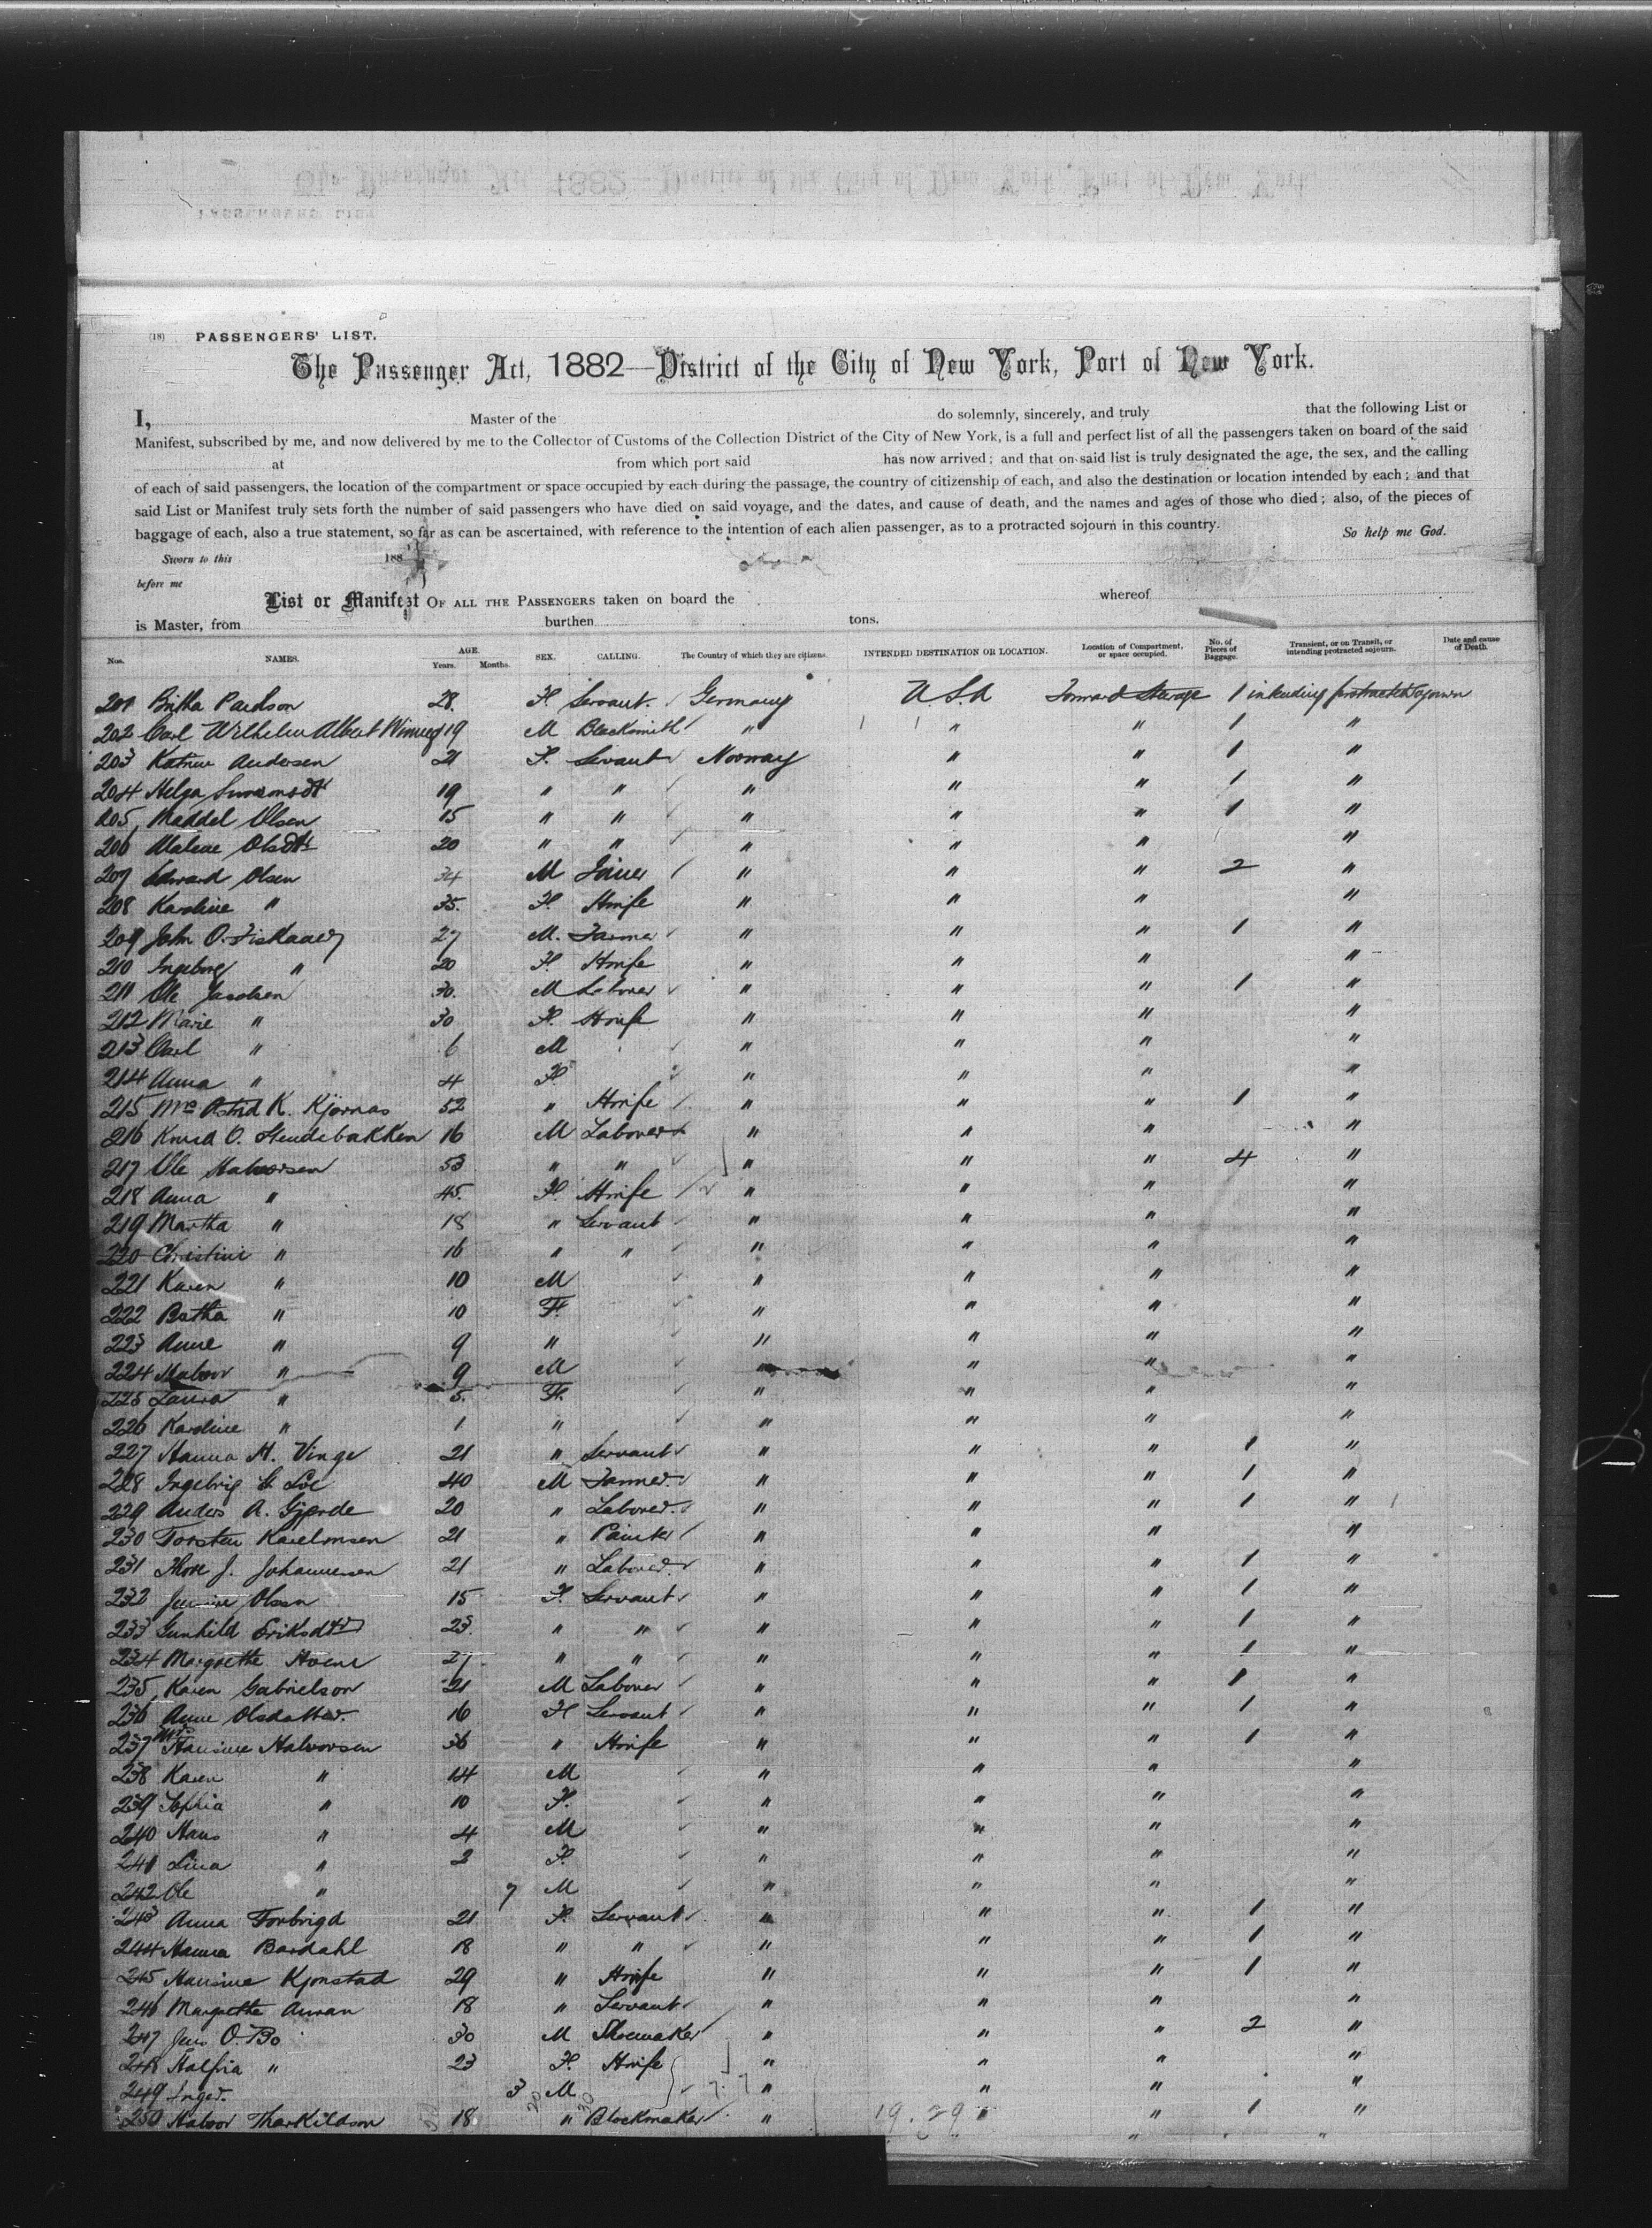 (18) PASSENGERS' LIST.
The Passenger Act, 1882—District of the City of New York, Port of New York.
I, Master of the do solemnly, sincerely, and truly that the following List or
Manifest, subscribed by me, and now delivered by me to the Collector of Customs of the Collection District of the City of New York, is a full and perfect list of all the passengers taken on board of the said
at from which port said has now arrived; and that on said list is truly designated the age, the sex, and the calling
of each of said passengers, the location of the compartment or space occupied by each during the passage, the country of citizenship of each, and also the destination or location intended by each; and that
said List or Manifest truly sets forth the number of said passengers who have died on said voyage, and the dates, and cause of death, and the names and ages of those who died; also, of the pieces of
baggage of each, also a true statement, so far as can be ascertained, with reference to the intention of each alien passenger, as to a protracted sojourn in this country. So help me God.
Sworn to this 188
before me
List or Manifest OF ALL THE PASSENGERS taken on board the whereof
is Master, from burthen tons.
Nos. NAMES. AGE. Years. Months. SEX. CALLING. The Country of which they are citizens. INTENDED DESTINATION OR LOCATION. Location of Compartment, or space occupied. No. of Pieces of Baggage. Transient, or on Transit, or intending protracted sojourn. Date and cause of Death.
201 Britha Paulson 28 F. Servant. Germany U.S.A Forward Steerage 1 intending protracted sojourn
202 Carl Wilhelm Albert 19 M Blacksmith " " " 1 "
203 Andersen 21 F. Servant Norway " " 1 "
204 Helga 19 " " " " " 1 "
205 Olsen 15 " " " " " 1 "
206 Malene 20 " " " " " "
207 Edward Olsen 34 M Joiner " " " 2 "
208 Karoline " 35. F. Hwife " " " "
209 John O. 27 M. Farmer " " " 1 "
210 Ingeborg " 20 F. Hwife " " " "
211 Ole Jacobsen 30. M Laborer " " " 1 "
212 Marie " 30 F. Hwife " " " "
213 Carl " 6 M " " " "
214 Anna " 4 F. " " " "
215 Mrs K. 52 " Hwife " " " 1 "
216 Knud O. 16 M Laborer " " " "
217 Ole Halvorsen 53 " " " " " 4 "
218 Anna " 45. F. Hwife " " " "
219 Martha " 18 " Servant " " " "
220 Christine " 16 " " " " " "
221 Karen " 10 M " " " "
222 Bertha " 10 F. " " " "
223 Anne " 9 " " " " "
224 Halvor " 9 M " " " "
225 Laura " 5. F. " " " "
226 Karoline " 1 " " " " "
227 Hanna H. Vinge 21 " Servant " " " 1 "
228 Ingebrig 40 M Farmer " " " 1 "
229 Anders A. Gjerde 20 " Laborer. " " " 1 "
230 Torsten 21 " Painter " " " "
231 J. Johannesen 21 " Laborer. " " " 1 "
232 Olsen 15 F. Servant " " " 1 "
233 Gunhild Eriksdtr 23. " " " " " 1 "
234 Margrethe 27 " " " " " 1 "
235 Karen Gabrielson 21 M Laborer " " " 1 "
236 Anne Olsdatter. 16 F Servant " " " 1 "
237 Mrs Hansine Halvorsen 36 " Hwife " " " 1 "
238 Karen " 14 M " " " "
239 Sophia " 10 F. " " " "
240 Hans " 4 M " " " "
241 Lina " 2 F. " " " "
242 Ole " 7 M " " " "
243 Anna Forbrigd 21 F. Servant " " " 1 "
244 Hanna Bardahl 18 " " " " " 1 "
245 Hansine Kjonstad 29 " Hwife " " " 1 "
246 Margrethe Aunan 18 " Servant " " " "
247 Jens O. Bo 30 M Shoemaker " " " 2 "
248 " 23 F. Hwife " " " "
249 3 M " " " "
250 Halvor Tharkildson 18 " Blockmaker " " " 1 "
19. 29